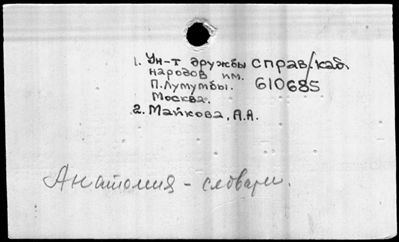 1. Ун-т дружбы справ/каб.
народов им. 610685
П. Лумумбы.
Москва.
2. Майкова, А.А.
Анатомия - словари.